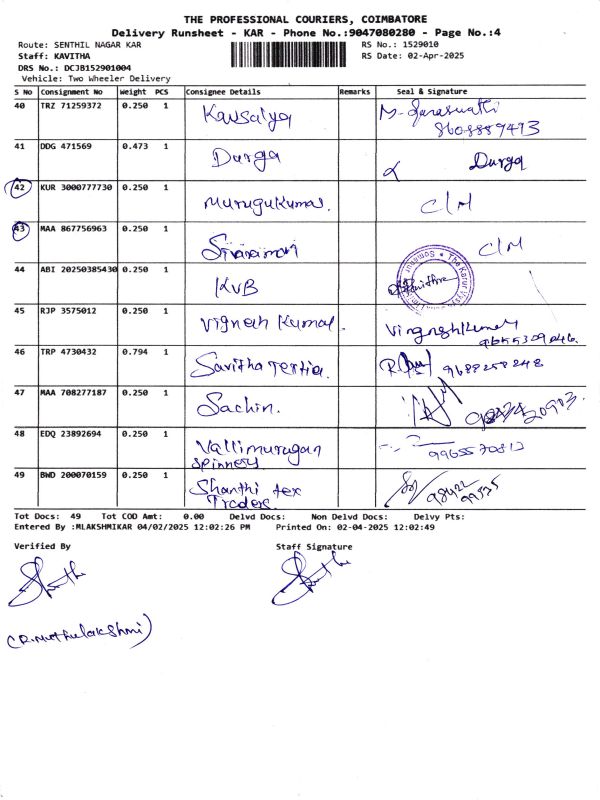 THE PROFESSIONAL COURIERS, COIMBATORE
Delivery Runsheet - KAR - Phone No.:9047080280 - Page No.:4
Route: SENTHIL NAGAR KAR RS No.: 1529010
Staff: KAVITHA RS Date: 02-Apr-2025
DRS No.: DCJB152901004
Vehicle: Two Wheeler Delivery
S No Consignment No Weight PCS Consignee Details Remarks Seal & Signature
40 TRZ 71259372 0.250 1 Kausalya M. Saraswathi
8608889493
41 DDG 471569 0.473 1 Durga Durga
42 KUR 3000777730 0.250 1 Murugukumar. C/M
43 MAA 867756963 0.250 1 Sivaraman C/M
44 ABI 20250385430 0.250 1 KVB
45 RJP 3575012 0.250 1 Vignesh Kumar.
46 TRP 4730432 0.794 1 Savitha Tertia. 9688258248
47 MAA 708277187 0.250 1 Sachin.
48 EDQ 23892694 0.250 1 Vallimurugan
Spinners
49 BWD 200070159 0.250 1 Shanthi tex
Traders 98422
99535
Tot Docs: 49 Tot COD Amt: 0.00 Delvd Docs: Non Delvd Docs: Delvy Pts:
Entered By :MLAKSHMIKAR 04/02/2025 12:02:26 PM Printed On: 02-04-2025 12:02:49
Verified By Staff Signature
(R.Muthulakshmi)